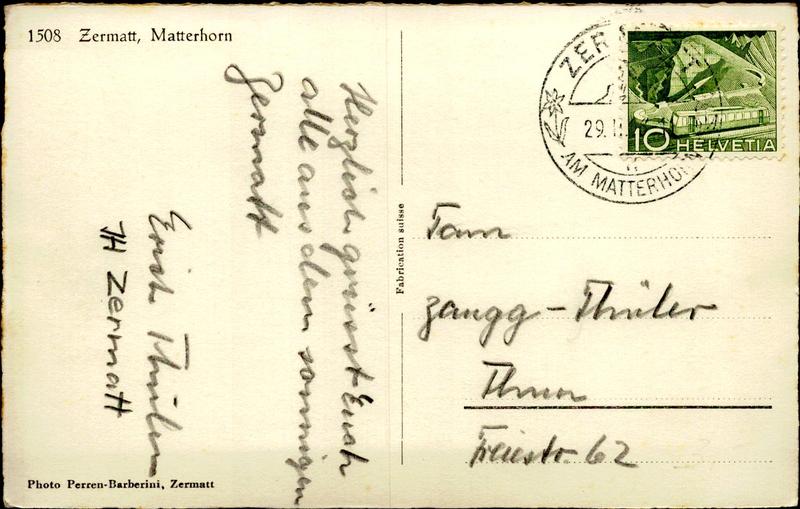 1508 Zermatt, Matterhorn
Herzlich grüsst Euch
alle aus dem sonnigen
Zermatt
Erich Thuler
JH Zermatt
Photo Perren-Barberini, Zermatt
Fabrication suisse
ZER
29.II
AM MATTERHORN
10 HELVETIA
Fam
Zaugg - Thuler
Thun
Freiestr. 62